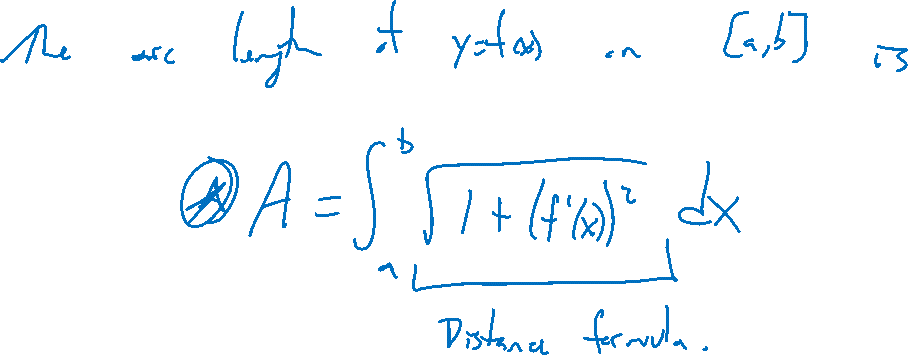 The arc length of y=f(x) on [a,b] is
A = ∫_a^b √(1 + (f'(x))²) dx
Distance formula.